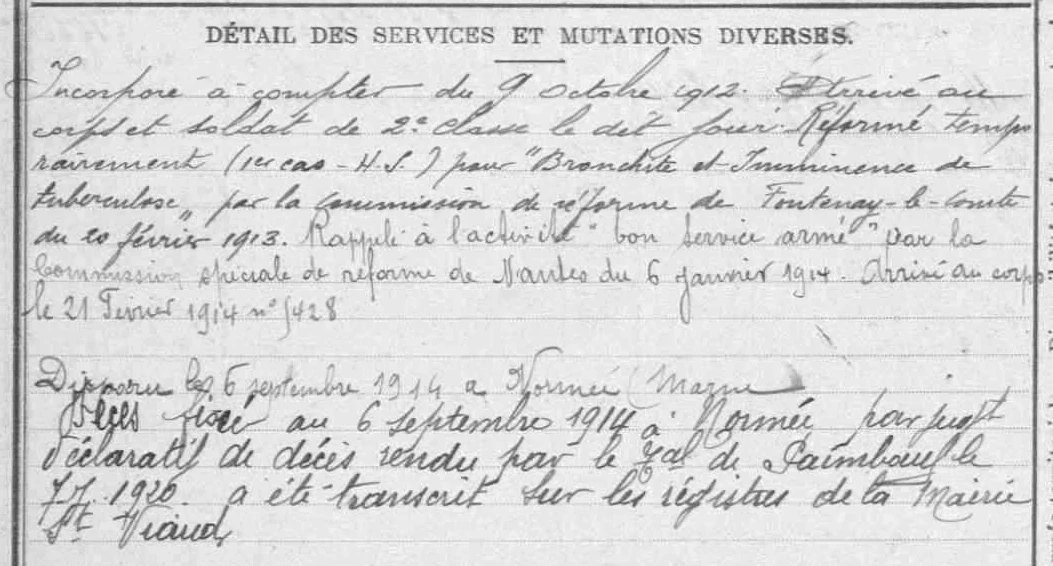 DÉTAIL DES SERVICES ET MUTATIONS DIVERSES.
Incorporé à compter du 9 octobre 1912. Arrivé au
corps et soldat de 2e classe le dit jour. Réformé tempo
rairement (1er cas - H.S.) pour "Bronchite et Imminence de
tuberculose" par la commission de réforme de Fontenay-le-Comte
du 20 février 1913. Rappelé à l'activité "bon service armé" par la
Commission spéciale de réforme de Nantes du 6 janvier 1914. Arrivé au corps
le 21 Février 1914 n° 5428
Disparu le 6 septembre 1914 a Normée (Marne
Décès fixé au 6 septembre 1914 à Normée par jugt
déclaratif de décès rendu par le Tal de Paimboeuf le
7.7.1920. a été transcrit sur les régistres de la Mairie
St Viaud